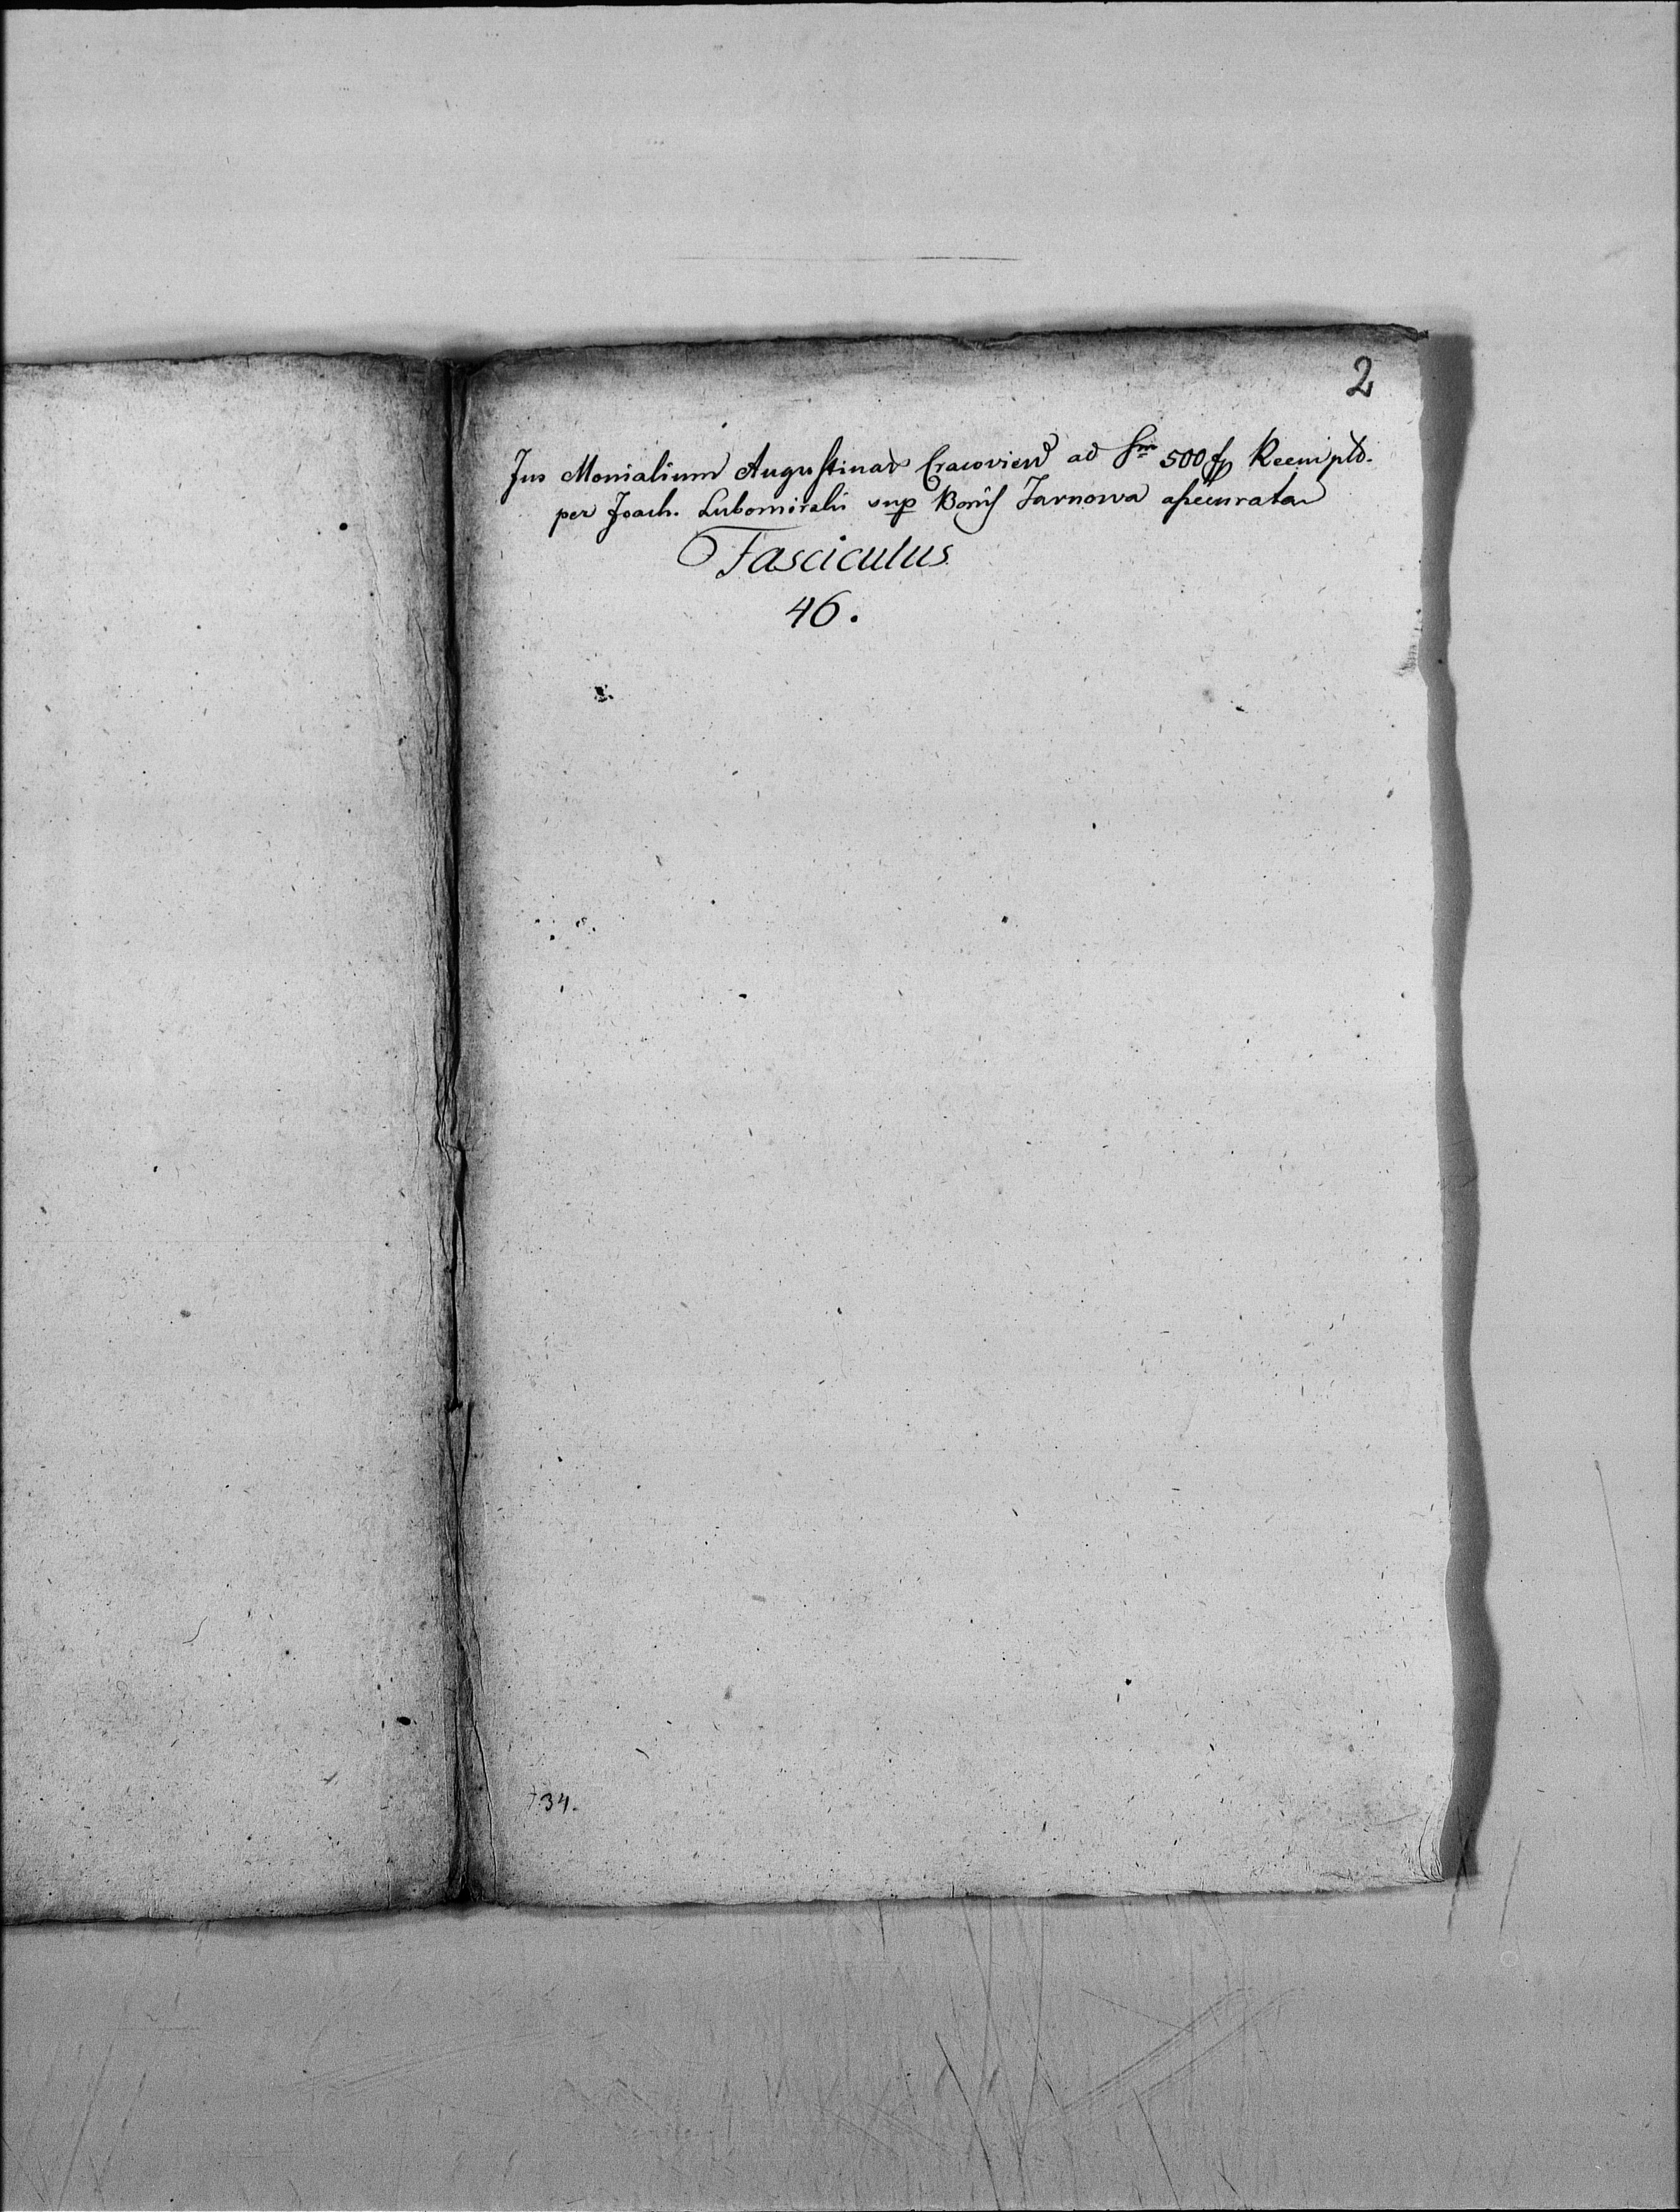 2
Jus Monialium Augustinar Cracovien ad Sm̅ 500 fp Reemptō.
per Joach. Lubomirski sup Bonis Tarnowa assecurata
Fasciculus
46.
34.